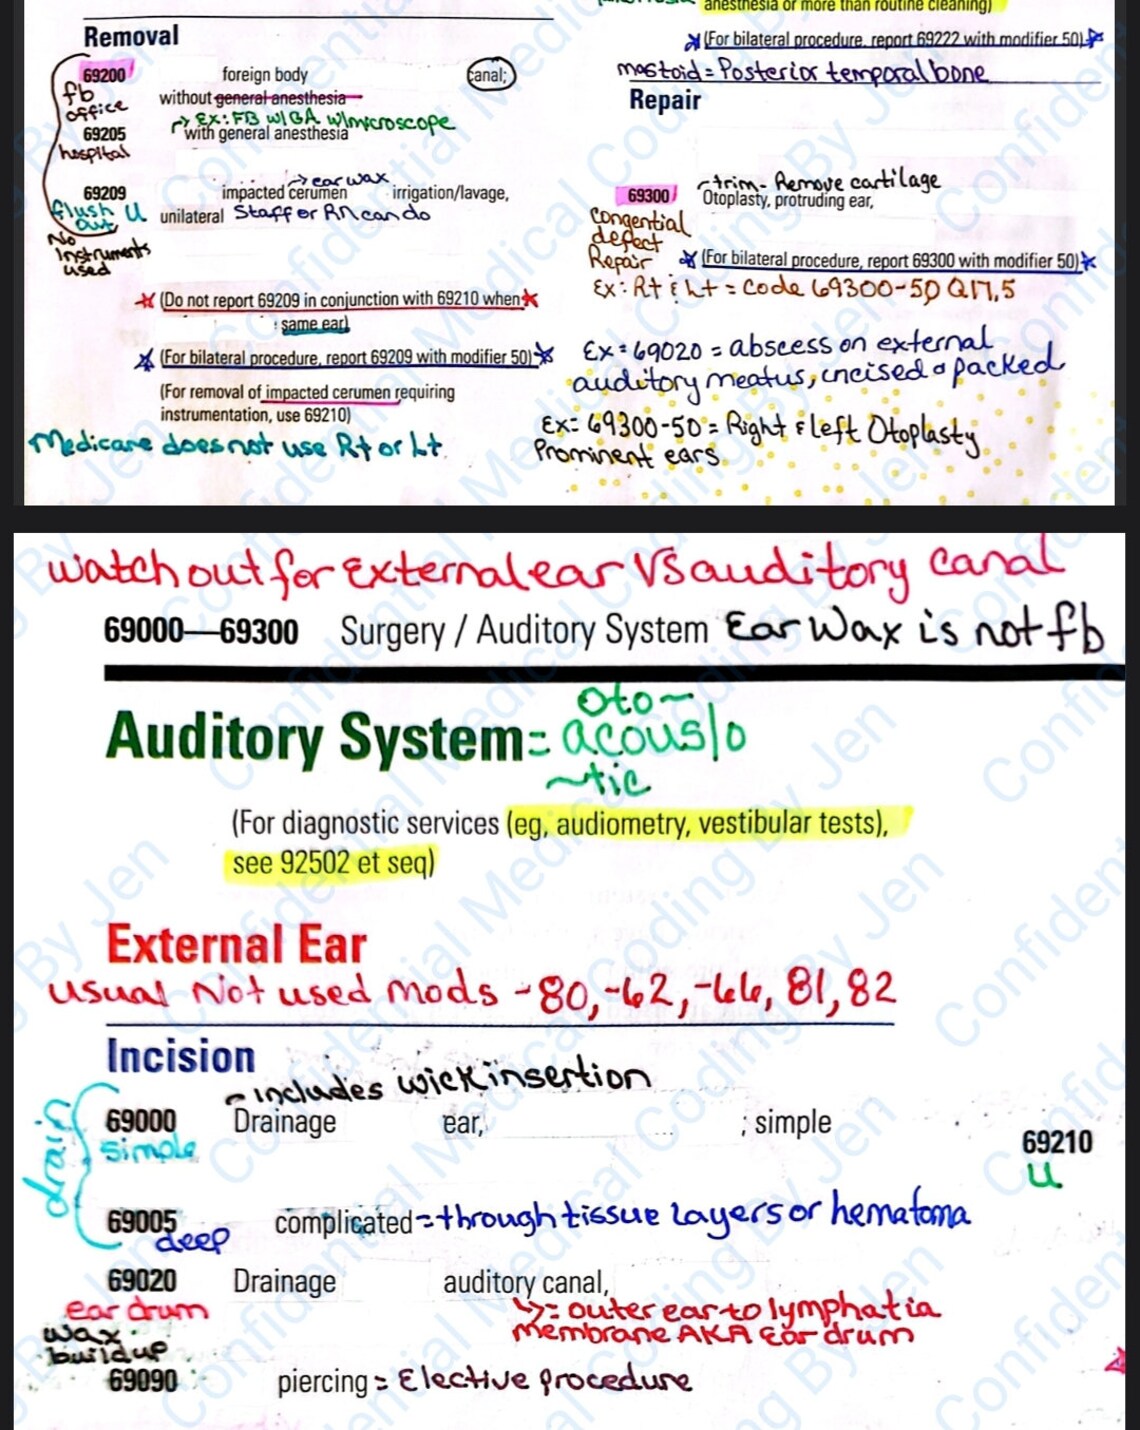 anesthesia or more than routine cleaning)
Removal
(For bilateral procedure, report 69222 with modifier 50)
mastoid = Posterior temporal bone
Repair
69200 foreign body canal;
fb
office
without general anesthesia
→ EX: FB w/GA w/microscope
69205 with general anesthesia
hospital
→ ear wax
69209 impacted cerumen irrigation/lavage,
flush U unilateral Staff or RN can do
out
No
instruments
used
(Do not report 69209 in conjunction with 69210 when
same ear)
(For bilateral procedure, report 69209 with modifier 50)
(For removal of impacted cerumen requiring
instrumentation, use 69210)
Medicare does not use Rt or Lt
-trim- Remove cartilage
69300 Otoplasty, protruding ear,
Congential
defect
Repair
(For bilateral procedure, report 69300 with modifier 50)
Ex: Rt & Lt = Code 69300-50 Q17.5
Ex = 69020 = abscess on external
auditory meatus, incised & packed
Ex = 69300-50 = Right & left Otoplasty
Prominent ears
watch out for External ear VS auditory canal
69000—69300 Surgery / Auditory System Ear Wax is not fb
oto~
Auditory System = acous/o
~tic
(For diagnostic services (eg, audiometry, vestibular tests),
see 92502 et seq)
External Ear
usual Not used mods -80, -62, -66, 81, 82
Incision
- includes wick insertion
drain
69000 Drainage ear, ; simple
simple
69210
U
69005 complicated = through tissue layers or hematoma
deep
69020 Drainage auditory canal,
ear drum
↳ = outer ear to lymphatia
membrane AKA Ear drum
wax
buildup
69090 piercing = Elective procedure
Confidential Medical Coding By Jen